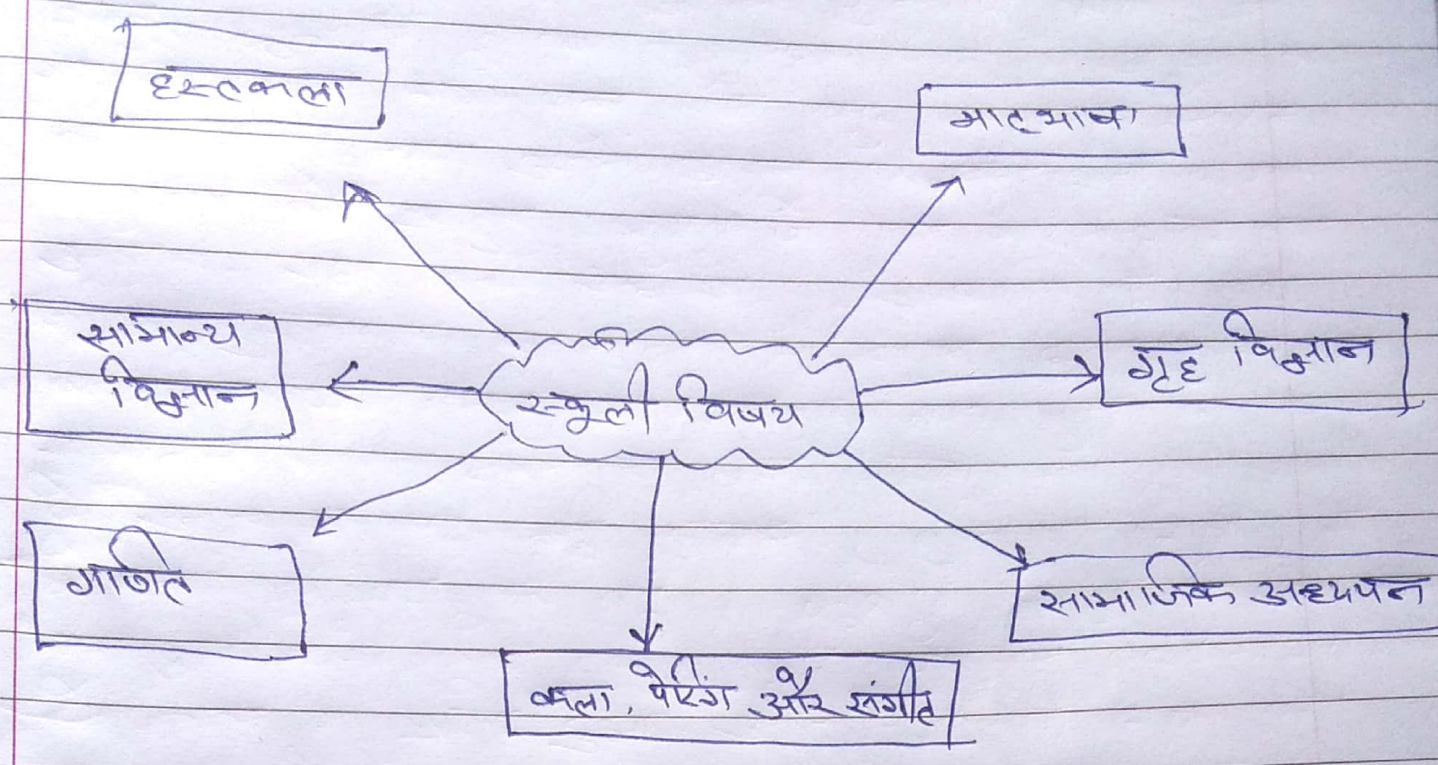 हस्तकला
मातृभाषा
सामान्य
विज्ञान
स्कूली विषय
गृह विज्ञान
गणित
सामाजिक अध्ययन
कला, पेंटिंग और संगीत